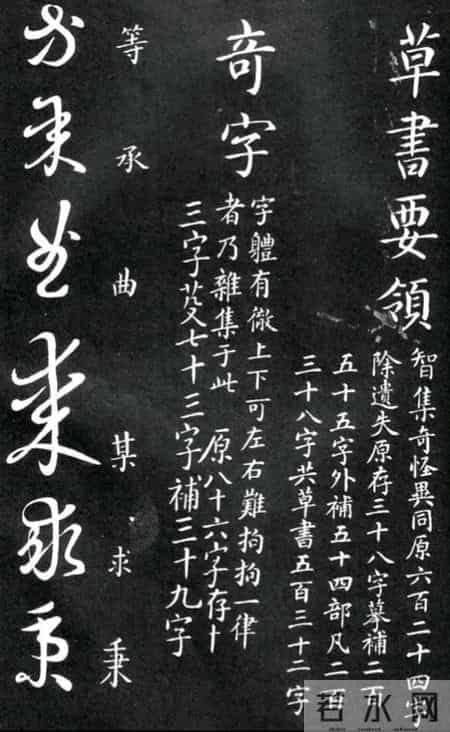 草書要領
智集奇怪異同原六百二十四字
除遺失原存三十八字摹補二百
五十五字外補五十四部凡二百
三十八字共草書五百三十二字
奇字
字體有倣上下可左右難拘拘一律
者乃雜集于此 原八十六字存十
三字芟七十三字補三十九字
等承曲某求秉
等承曲某求秉
若水网